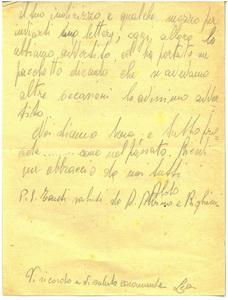 il tuo indirizzo e qualche mezzo per
inviarti una lettera; oggi, allora lo
abbiamo avvertito, ed ha portato un
pacchetto dicendo che se avevamo
altre occasioni lo avessimo avver
tito.
Noi stiamo bene e tutto pro
cede..... come nel passato. Ricevi
un abbraccio da noi tutti
P.S. Tanti saluti da D.
Ti ricordo e ti saluto caramente